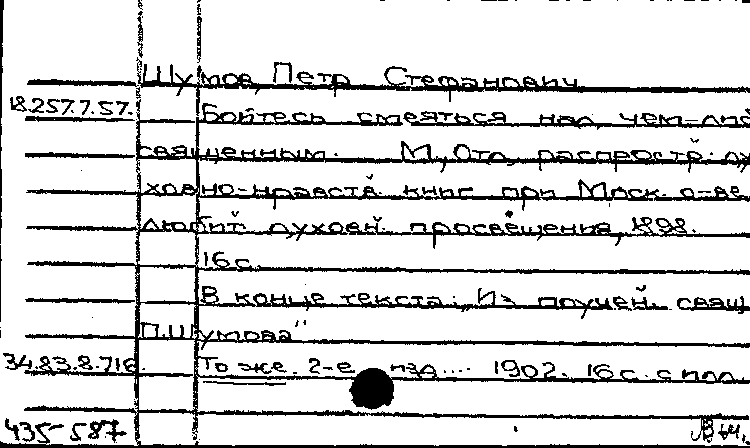 Шумов, Петр Стефанович
18.257.7.57. Бойтесь смеяться над чем-либо
священным. М., Отд. распростр. ду
ховно-нравств. книг при Моск. о-ве
любит. духовн. просвещения, 1898.
16 с.
В конце текста: „Из поучен. свящ.
П. Шумова"
34.83.8.716. То же. 2-е изд.... 1902. 16 с. с илл.
435-587